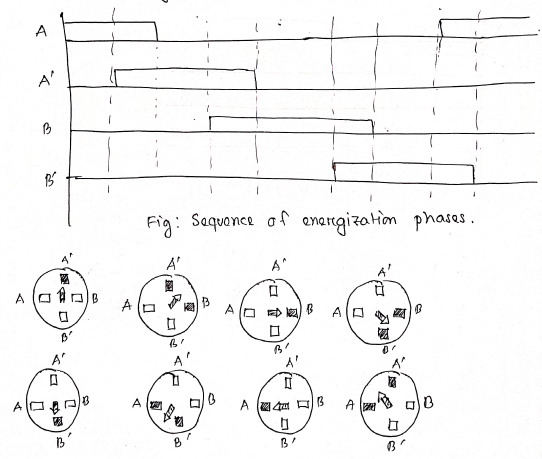 A
A'
B
B'
Fig: Sequence of energization phases.
A' A' A' A'
A B A B A B A B
B' B' B' B'
A' A' A' A'
A B A B A B A B
B' B' B' B'